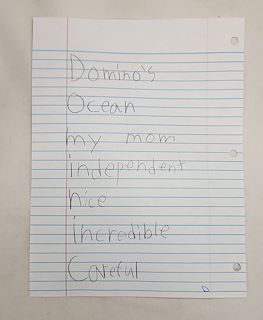 Domino's
Ocean
my mom
independent
nice
incredible
Careful
D